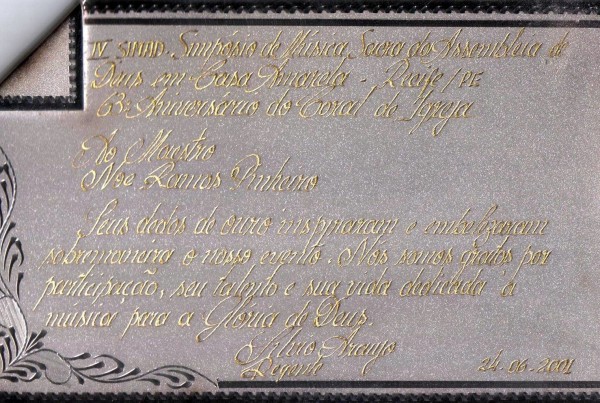 IV SIMAD. Simpósio de Música Sacra da Assembléia de
Deus em Casa Amarela - Recife/PE
63º Aniversário do Coral da Igreja
Ao Maestro
Noé Ramos Pinheiro
Seus dedos de ouro inspiraram e embelezaram
sobremaneira o nosso evento. Nós somos gratos por
participação, seu talento e sua vida dedicada à
música para a Glória de Deus.
Silvio Araujo
Regente
24.06.2001